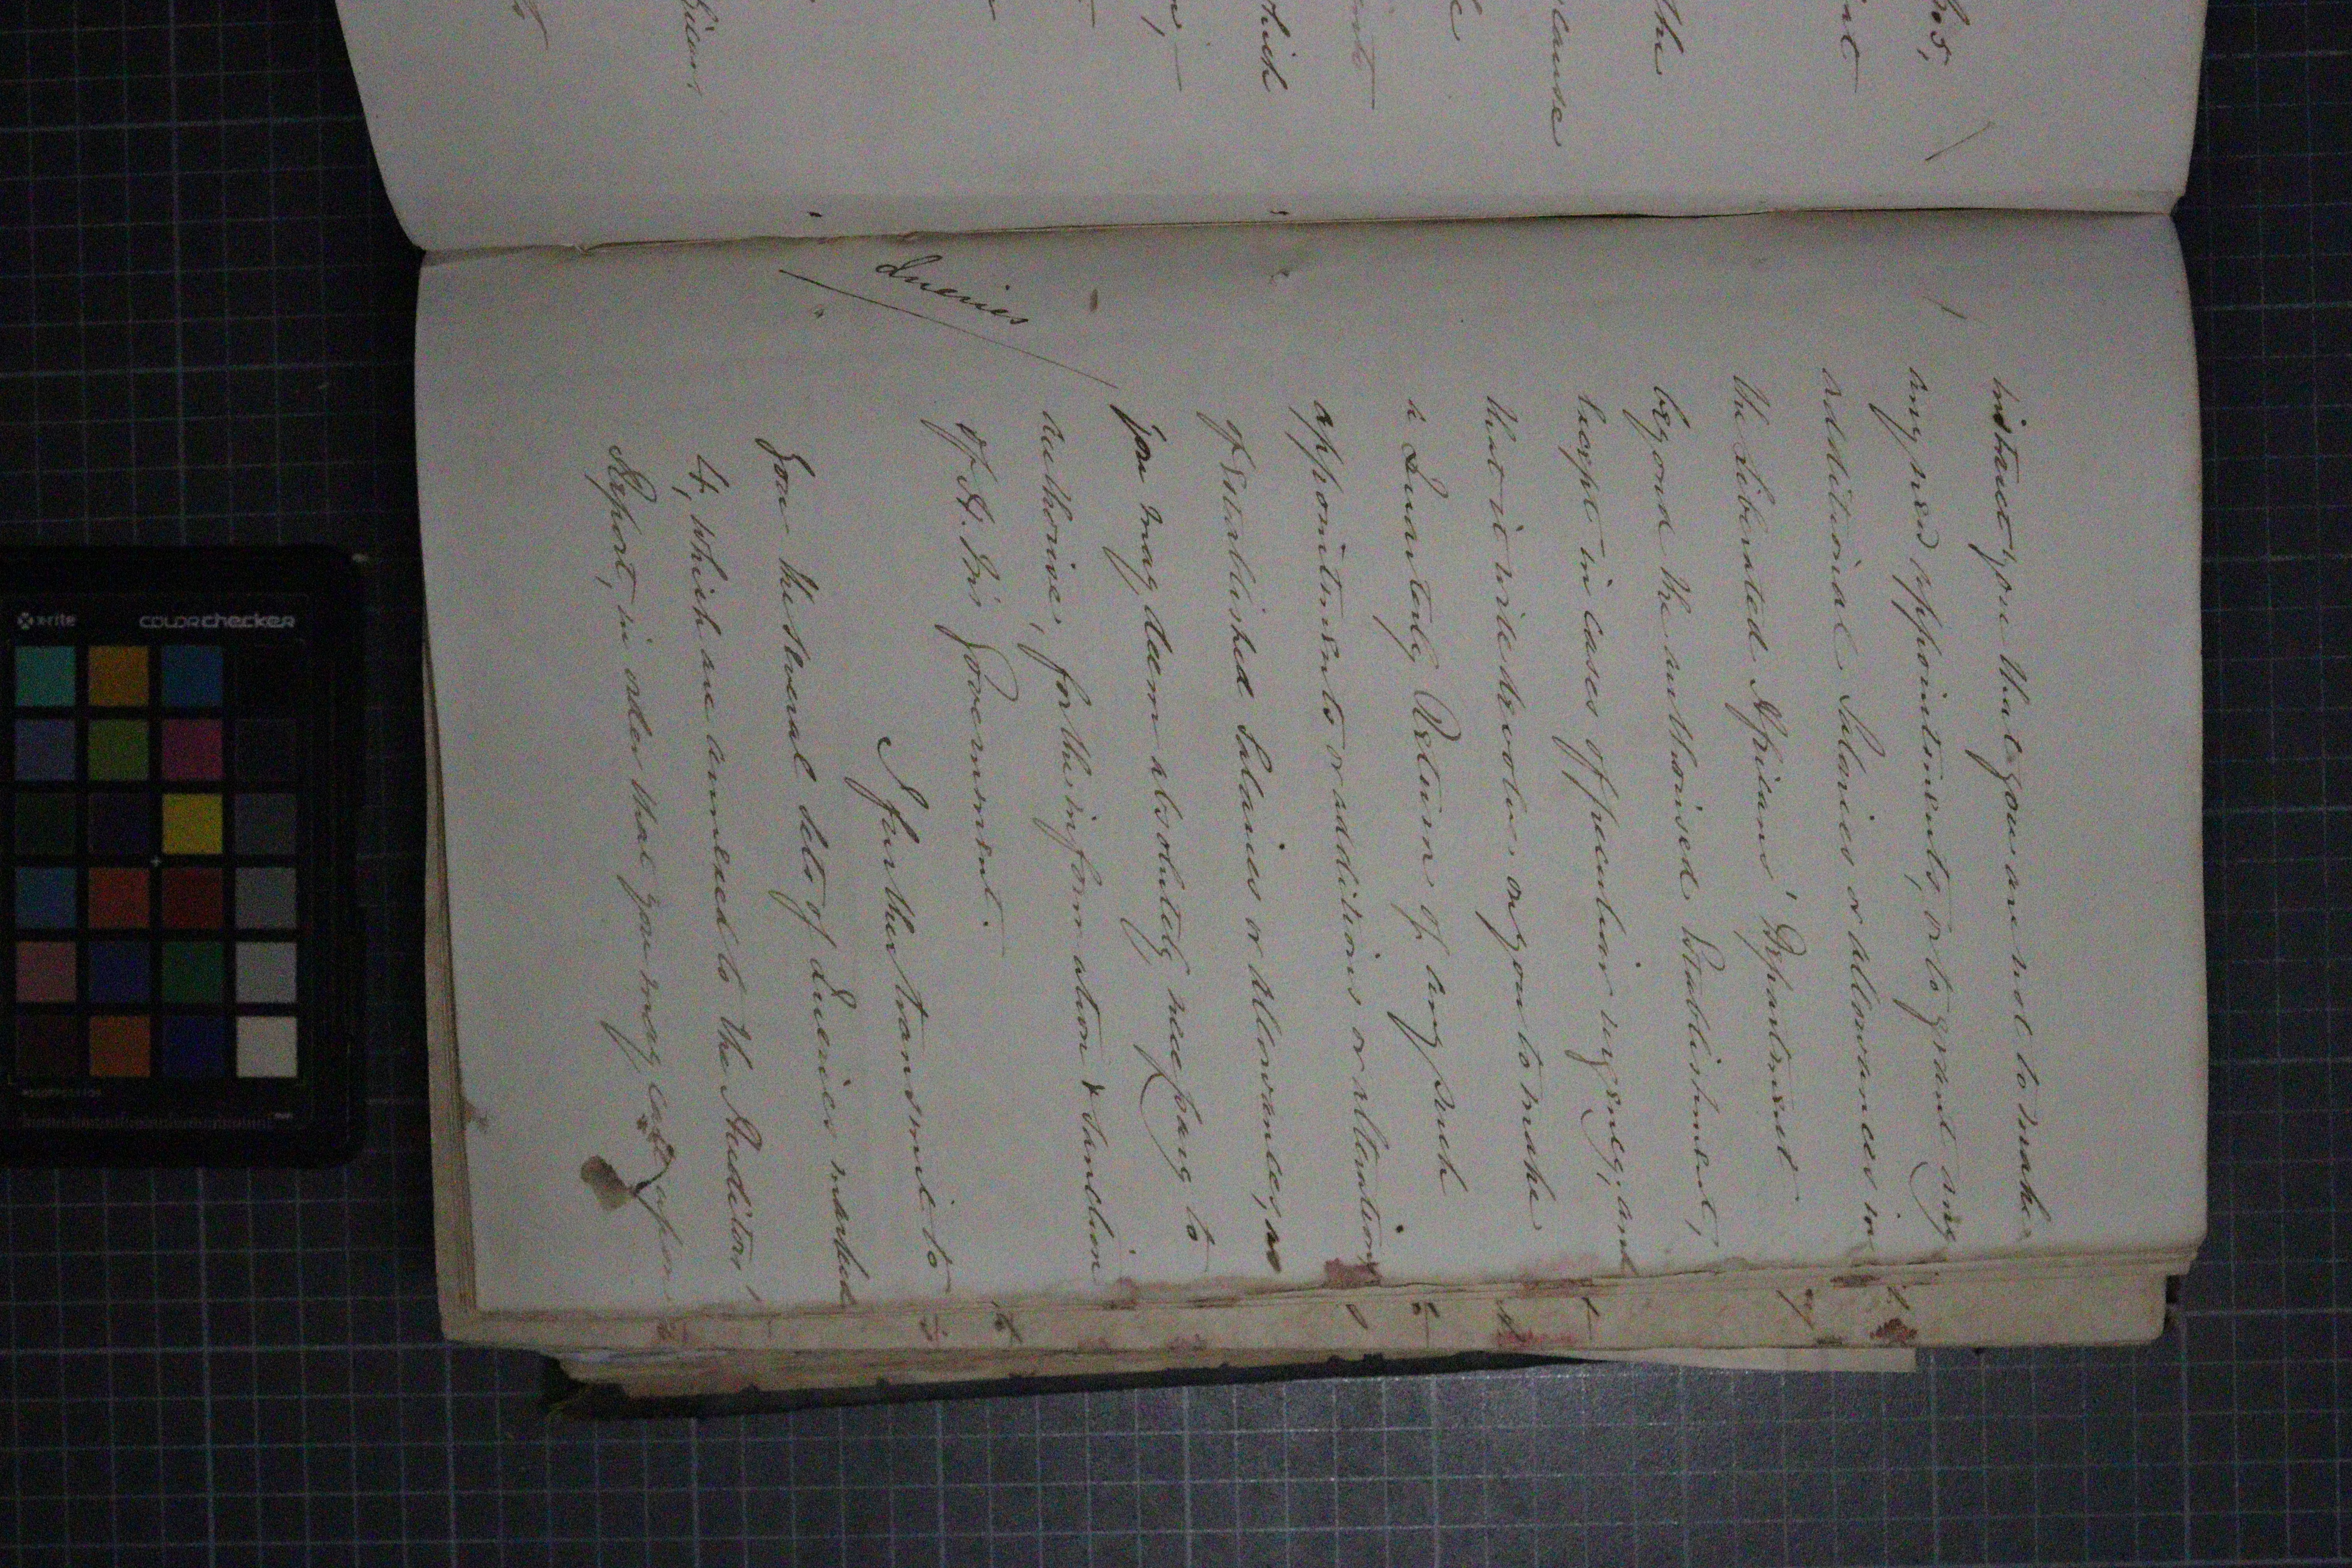 instruct you that you are not to make
any new appointments, or to grant any
additional Salaries or allowances in
the Liberated Africans' Department
beyond the authorised Establishment,
except in cases of peculiar urgency, and
that it will devolve on you to make
a Quarterly Return of any such
appointments or additions or alterations
of Established Salaries or Allowances, as
you may deem absolutely necessary to
authorise, for the information & sanction
of H. M's Government.
Queries
I further transmit to
you the several sets of Queries marked
4, which are annexed to the Auditors'
Report, in order that you may call upon
the
cause
which
x-rite
colorchecker